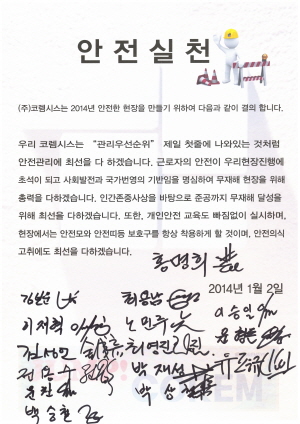 안전실천
(주)코렘시스는 2014년 안전한 현장을 만들기 위하여 다음과 같이 결의 합니다.
우리 코렘시스는 “관리우선순위” 제일 첫줄에 나와있는 것처럼
안전관리에 최선을 다 하겠습니다. 근로자의 안전이 우리현장진행에
초석이 되고 사회발전과 국가번영의 기반임을 명심하여 무재해 현장을 위해
총력을 다하겠습니다. 인간존중사상을 바탕으로 준공까지 무재해 달성을
위해 최선을 다하겠습니다. 또한, 개인안전 교육도 빠짐없이 실시하며,
현장에서는 안전모와 안전띠등 보호구를 항상 착용하게 할 것이며, 안전의식
고취에도 최선을 다하겠습니다.
2014년 1월 2일
최용남
이승일
이재혁
노민주
김성민
최영진
박재선
박상
백승현